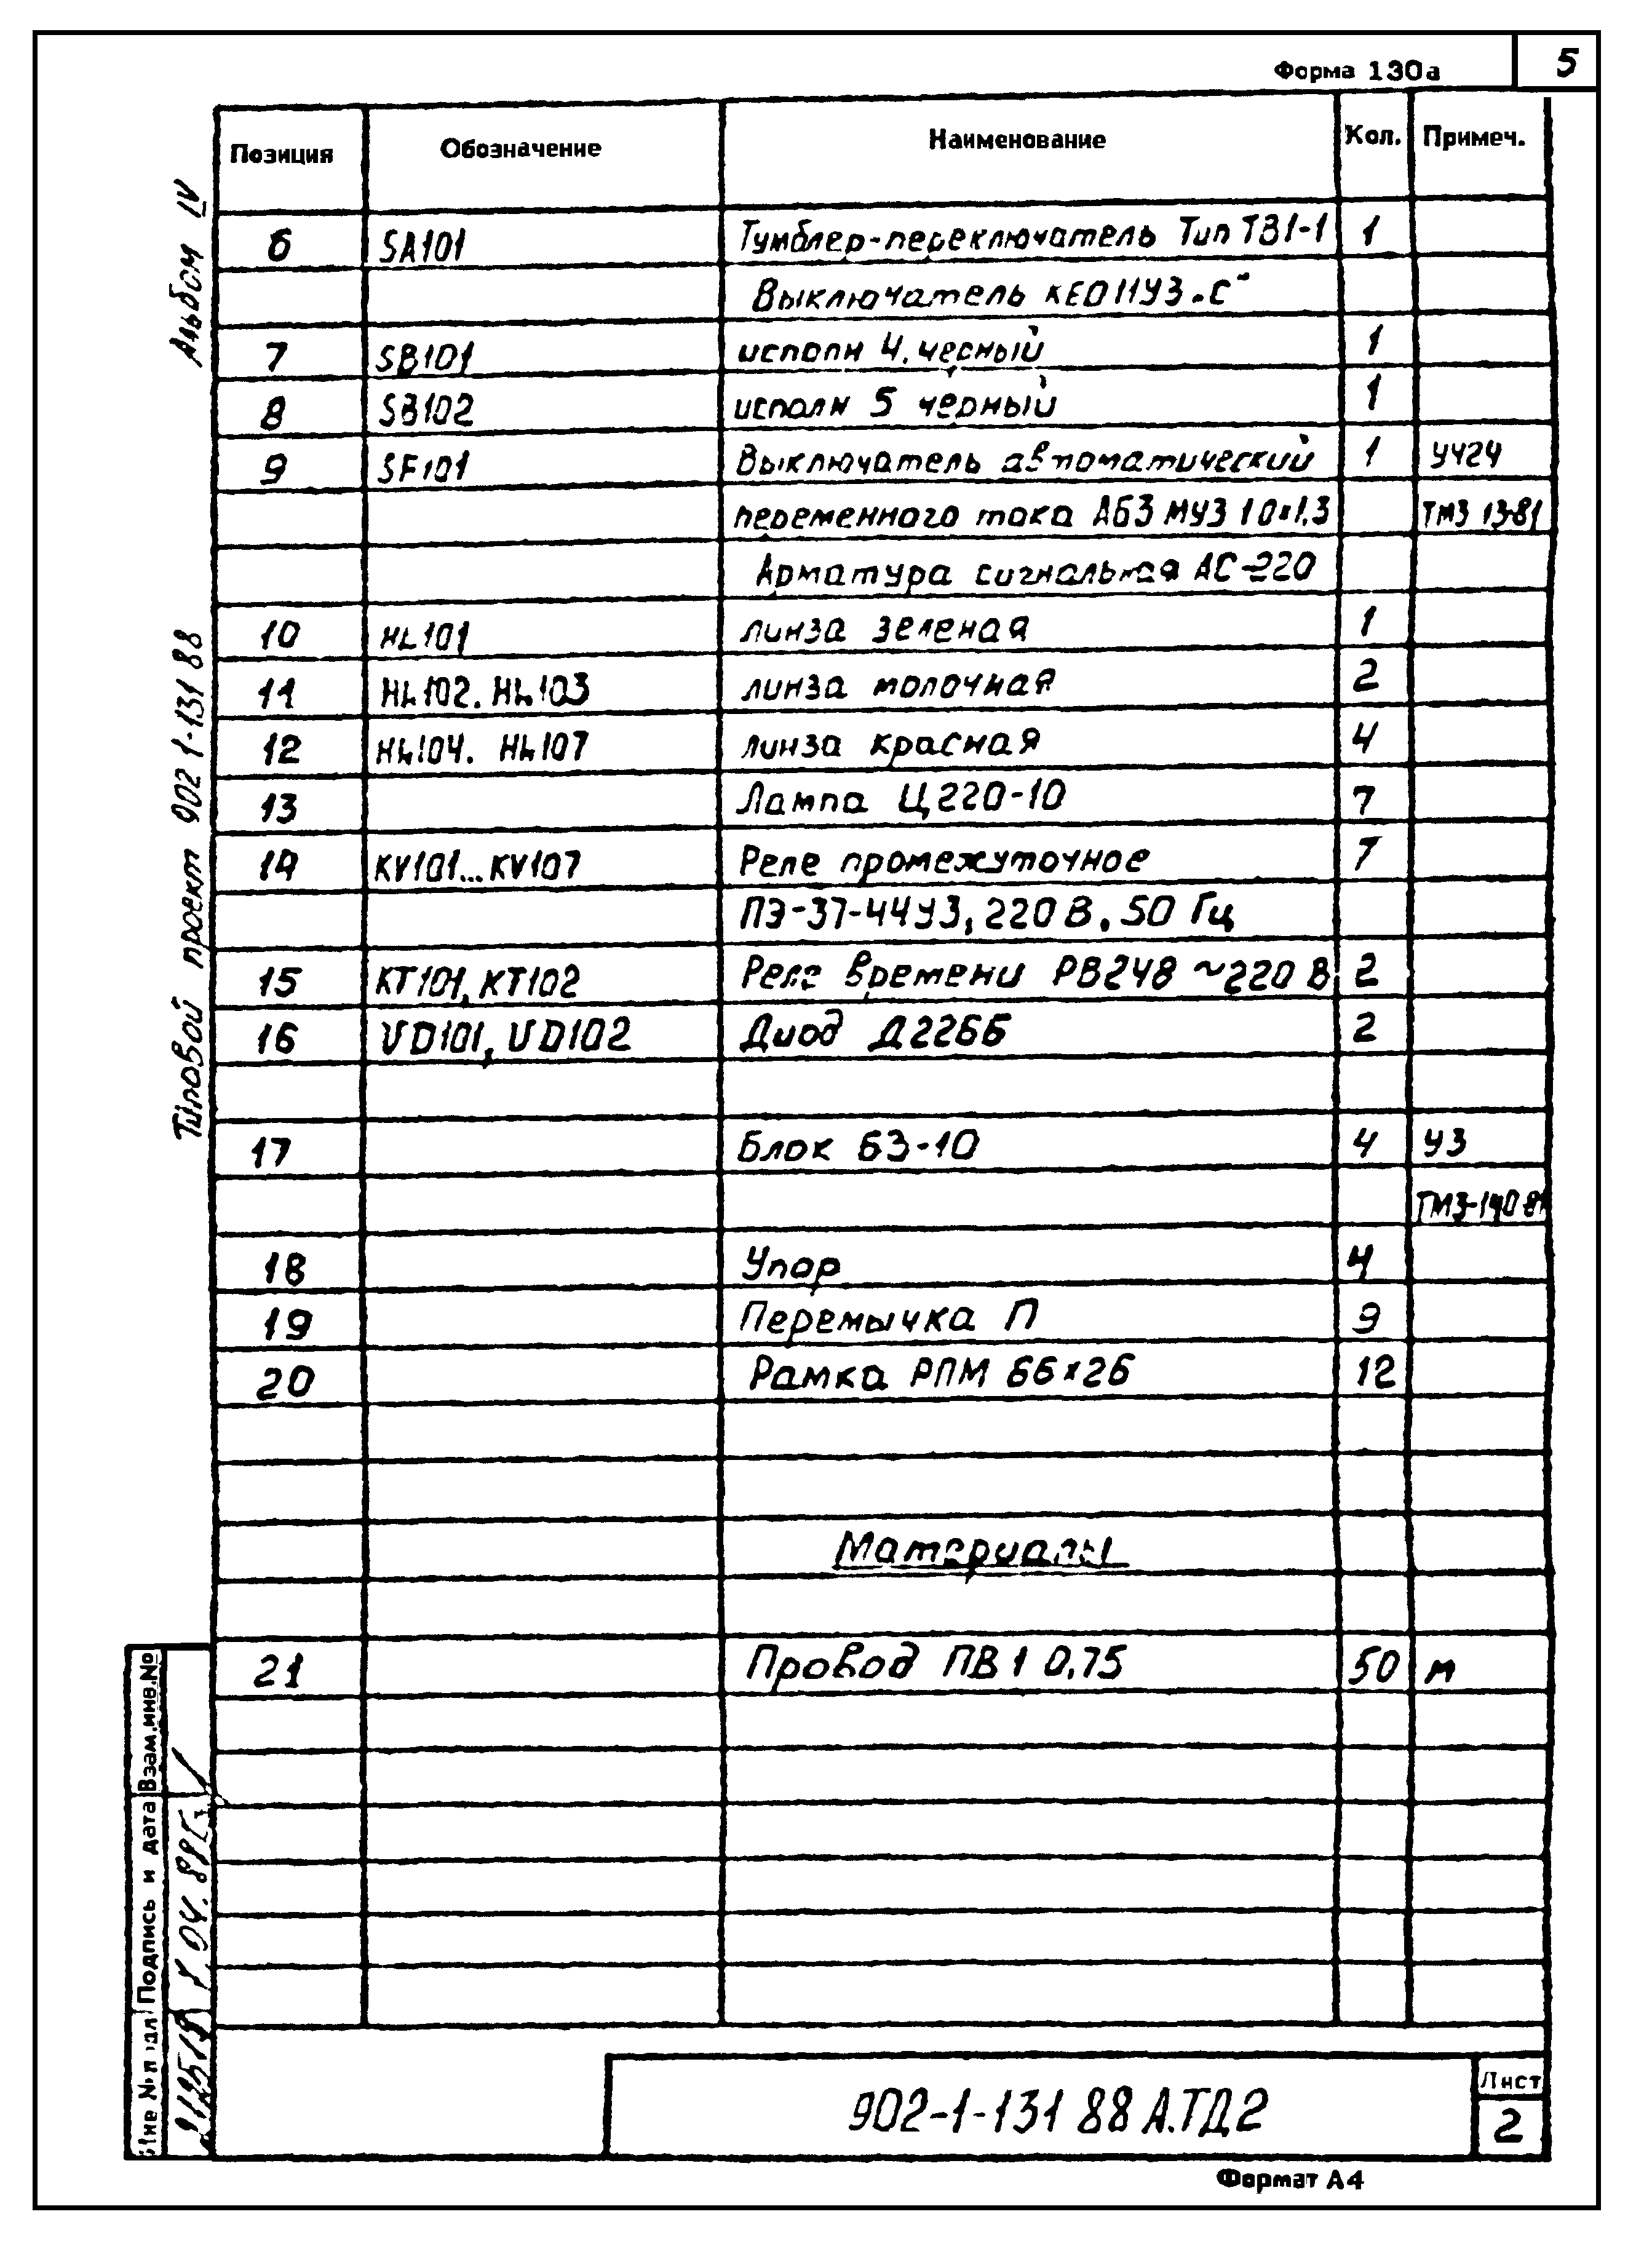 Форма 130а
5
Позиция Обозначение Наименование Кол. Примеч.
6 SA101 Тумблер-переключатель Тип ТВ1-1 1
Выключатель КЕ011У3 „С"
7 SB101 исполн 4. черный 1
8 SB102 исполн 5 черный 1
9 SF101 Выключатель автоматический 1 УЧ24
переменного тока АБ3 МУ3 1 0х1,3 ТМ3 13-81
Арматура сигнальная АС-220
10 HL101 линза зеленая 1
11 HL102. HL103 линза молочная 2
12 HL104. HL107 линза красная 4
13 Лампа Ц220-10 7
14 KV101...KV107 Реле промежуточное 7
ПЭ-37-44У3, 220 В, 50 Гц
15 KT101, KT102 Реле времени РВ248 ~220 В 2
16 VD101, VD102 Диод Д226Б 2
17 Блок БЗ-10 4 У3
ТМ3-140 81
18 Упор 4
19 Перемычка П 9
20 Рамка РПМ 66х26 12
Материалы
21 Провод ПВ 1 0,75 50 м
Альбом IV
Типовой проект 902 1-131 88
Взам.инв.№
Подпись и дата
Инв № п дл
902-1-131 88 А.ТД2
Лист
2
Формат А4